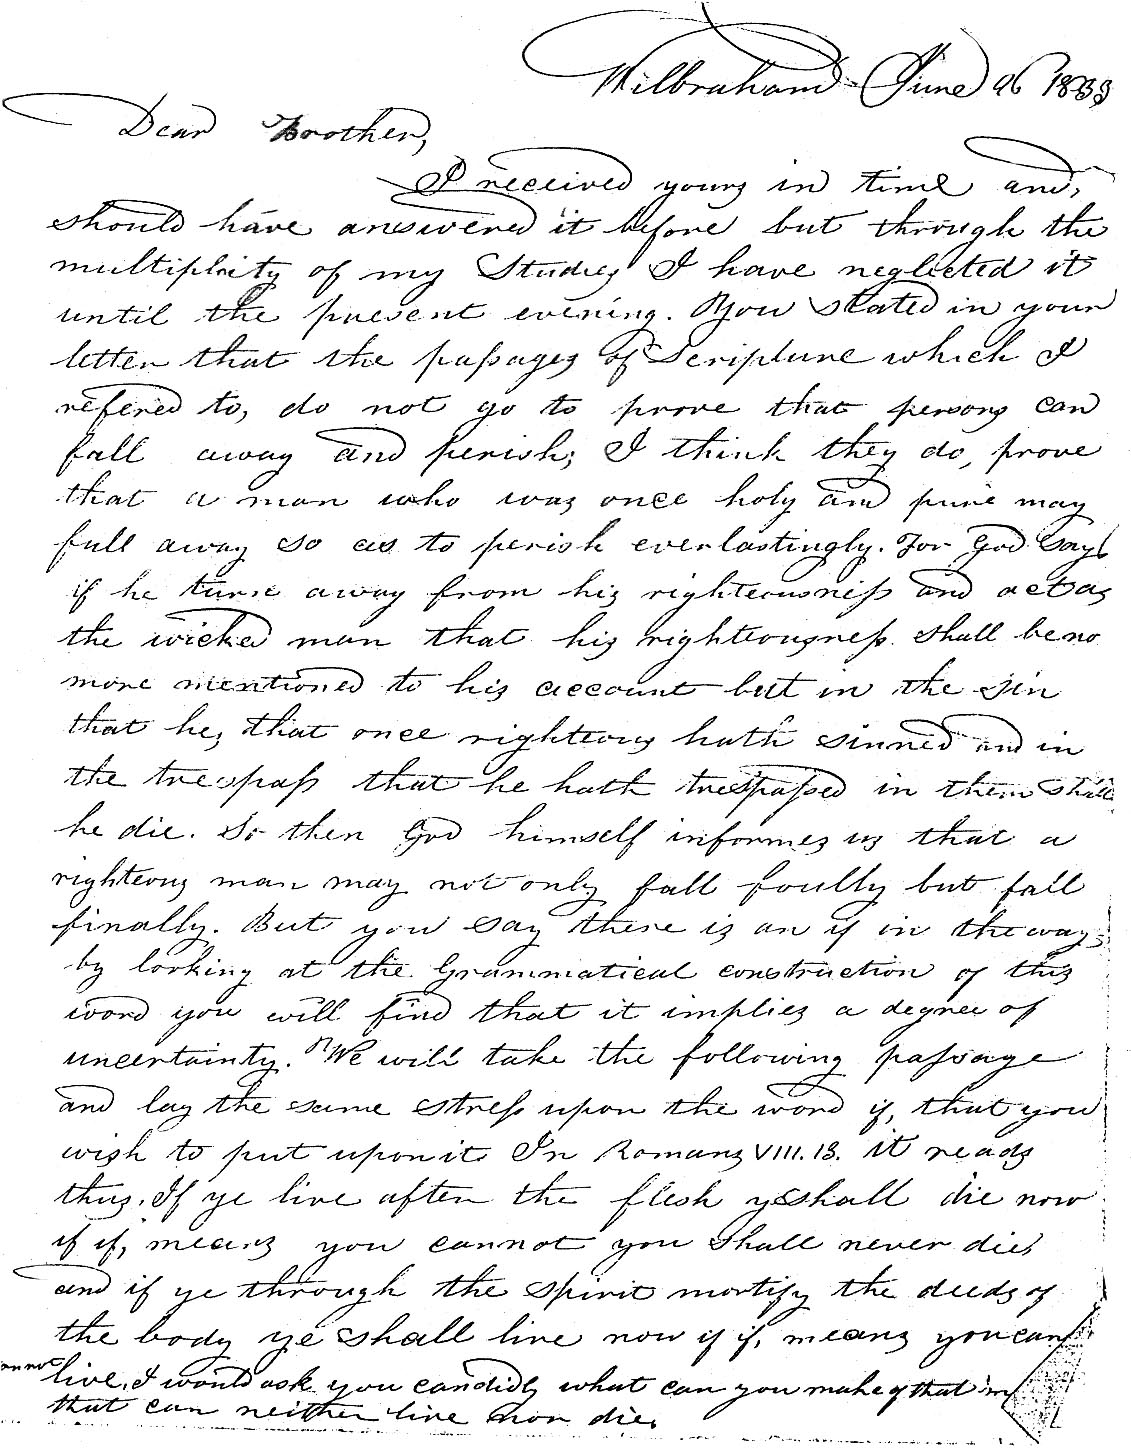 Wilbraham June 26 1833
Dear Brother,
I received yours in time and,
should have answered it before but through the
multiplicity of my Studies I have neglected it
until the present evening. You stated in your
letter that the passages of Scripture which I
refered to, do not go to prove that persons can
fall away and perish; I think they do, prove
that a man who was once holy and pure may
fall away so as to perish everlastingly. For God says
if he turn away from his righteousness and act as
the wicked man that his righteousness shall be no
more mentioned to his account but in the sin
that he, that once righteous hath sinned and in
the trespass that he hath trespassed in them shall
he die. So then God himself informes us that a
righteous man may not only fall foully but fall
finally. But you say there is an if in the way;
by looking at the Grammatical construction of this
word you will find that it implies a degree of
uncertainty. We will take the following passage
and lay the same stress upon the word if, that you
wish to put upon it. In Romans VIII. 13. it reads
thus. If ye live after the flesh ye shall die now
if if, means you cannot you shall never die,
and if ye through the spirit mortify the deeds of
the body ye shall live now if if, means you can
annot live, I would ask you candidly what can you make of that
that can neither live nor die,